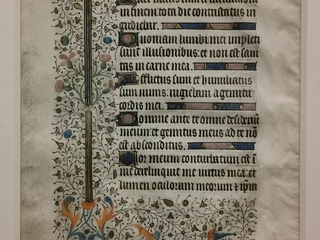 in fine tota die contristatus in
grediebar.
Quoniam lumbi mei impleti
sunt illusionibus et non est sani
tas in carne mea.
Afflictus sum et humiliatus
sum nimis rugiebam a gemitu
cordis mei.
Domine ante te omne desideriū
meum et gemitus meus ad te nō
est absconditus.
Cor meum conturbatum est ī
me dereliquit me virtus mea et
lumen oculorum meorum et ip̄m